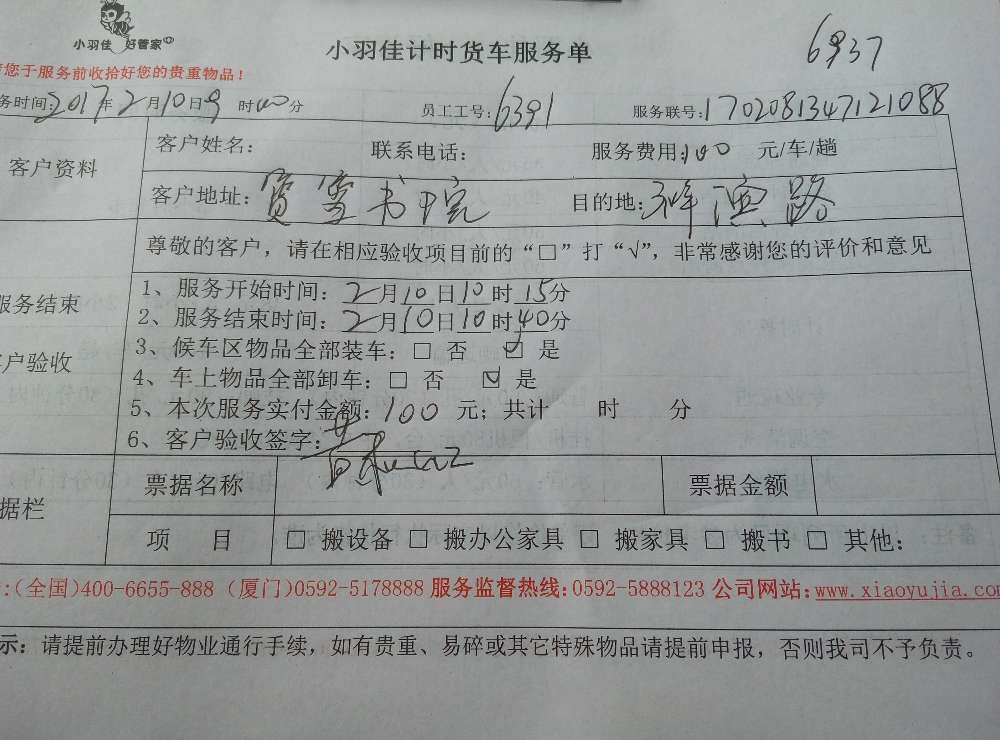 小羽佳 好管家
小羽佳计时货车服务单
6937
您于服务前收拾好您的贵重物品!
务时间:2017年2月10日9时40分 员工工号:6391 服务联号:1702081347121088
客户资料
客户姓名: 联系电话: 服务费用:100 元/车/趟
客户地址: 书院 目的地:祥滨路
尊敬的客户,请在相应验收项目前的“□”打“√”,非常感谢您的评价和意见
服务结束
户验收
1、服务开始时间:2月10日10时15分
2、服务结束时间:2月10日10时40分
3、候车区物品全部装车:□ 否 ☑ 是
4、车上物品全部卸车:□ 否 ☑ 是
5、本次服务实付金额:100 元;共计 时 分
6、客户验收签字:
据栏
票据名称 票据金额
项 目 □ 搬设备 □ 搬办公家具 □ 搬家具 □ 搬书 □ 其他:
:(全国)400-6655-888 (厦门)0592-5178888 服务监督热线:0592-5888123 公司网站:www.xiaoyujia.com
示:请提前办理好物业通行手续,如有贵重、易碎或其它特殊物品请提前申报,否则我司不予负责。